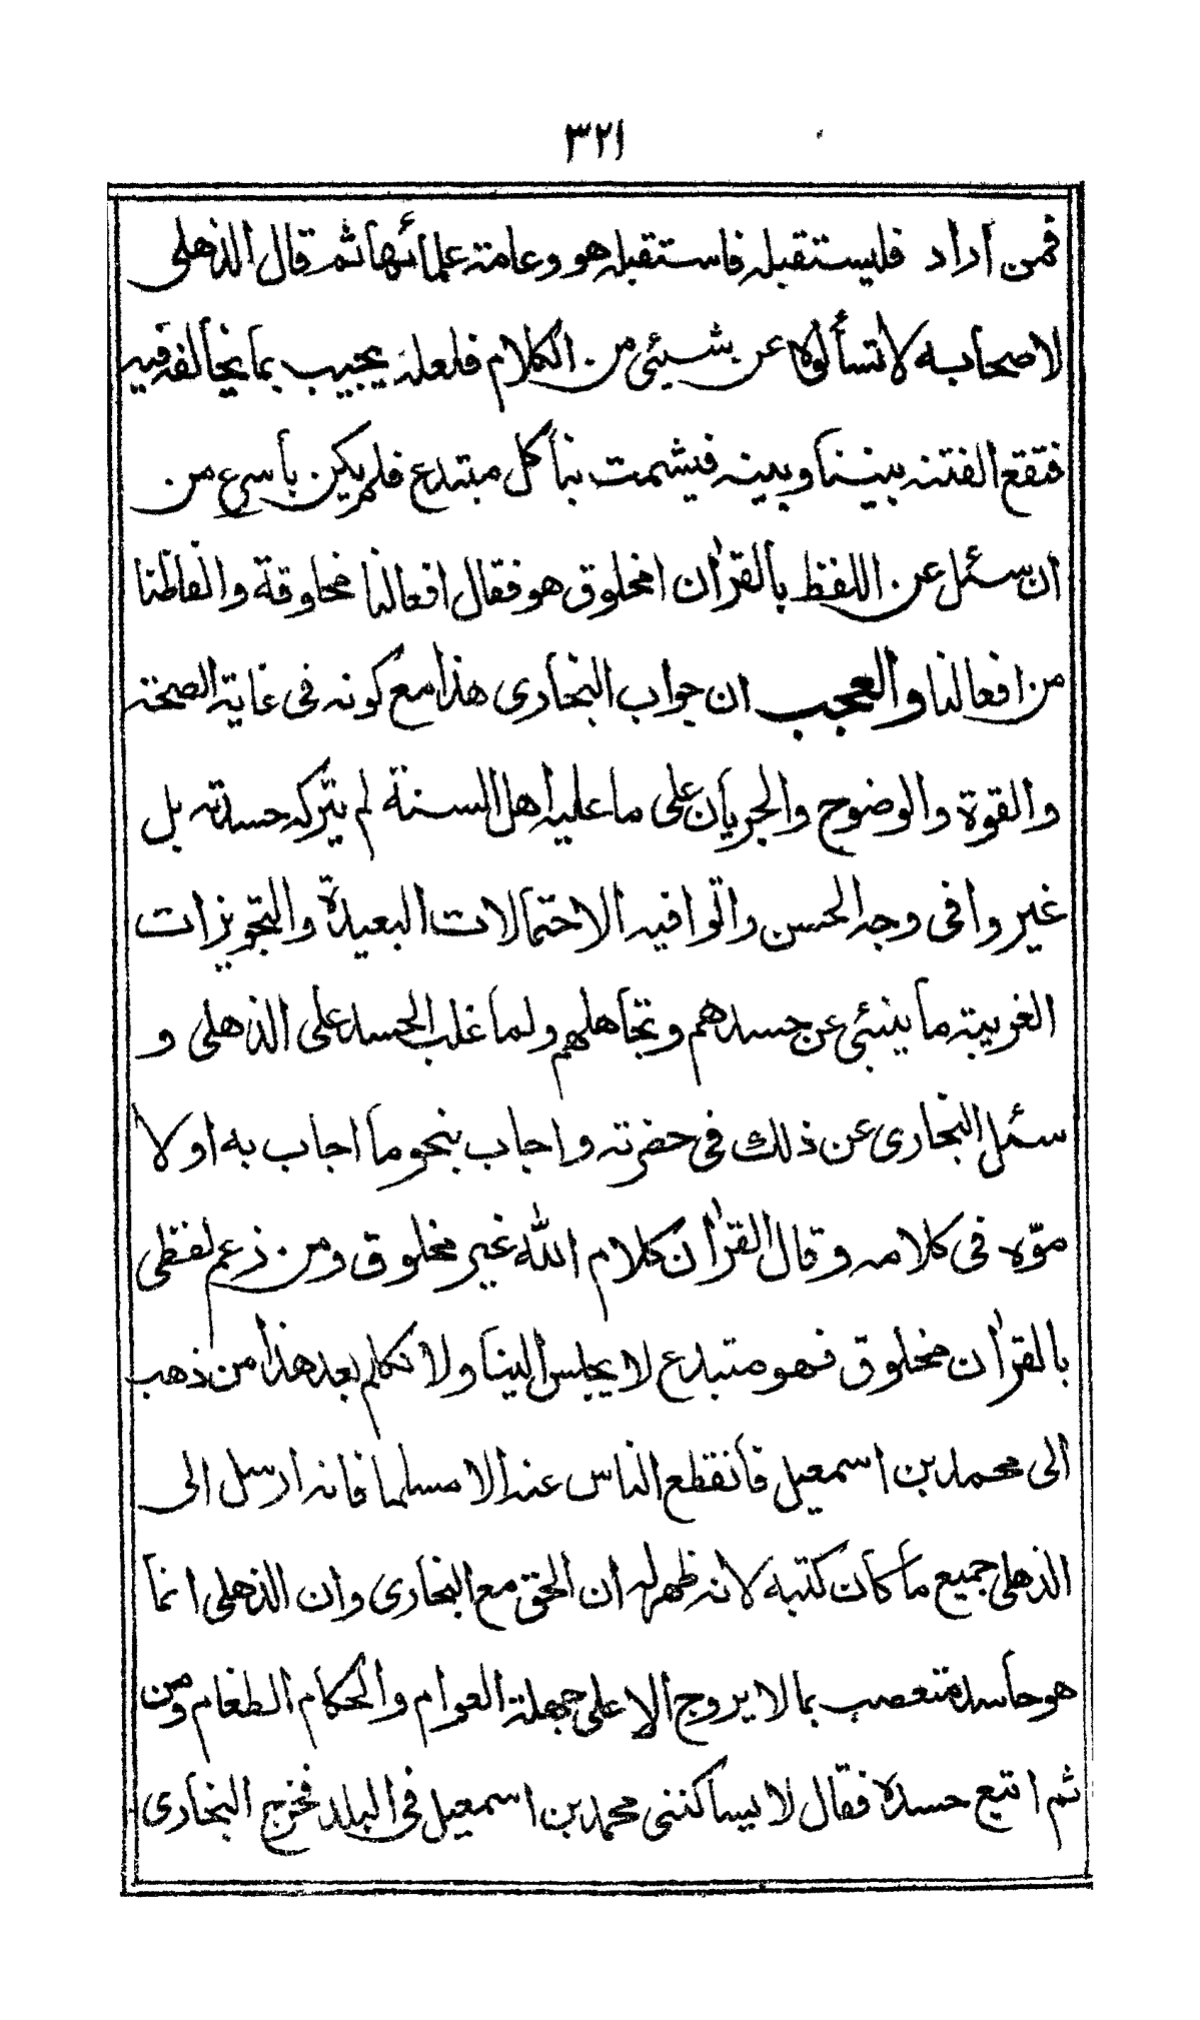 ٣٢١
فمن اراد فليستقبله فاستقبله هو وعامة علمائها ثم قال الذهلى
لاصحابه لا تسألوه عن شيئ من الكلام فلعله يجيب بما يخالفه فيه
فتقع الفتنه بيننا وبينه فيشمت بنا كل مبتدع فلم يكن بأسرع من
ان سئل عن اللفظ بالقرأن امخلوق هو فقال افعالنا مخلوقة والفاظنا
من افعالنا والعجب ان جواب البخارى هذا مع كونه فى غاية الصحة
والقوة والوضوح والجريان على ما عليه اهل السنة لم يتركه حسدته بل
غيروا فى وجه الحسن واتوا فيه الاحتمالات البعيدة والتجويزات
الغريبة ما ينبئ عن حسدهم وتجاهلهم ولما غلب الحسد على الذهلى و
سئل البخارى عن ذلك فى حضرته واجاب بنحو ما اجاب به اولا
موّه فى كلامه وقال القرأن كلام الله غير مخلوق ومن زعم لفظى
بالقرأن مخلوق فهو مبتدع لا يجلس الينا ولا نكلم بعد هذا من ذهب
الى محمد بن اسمعيل فانقطع الناس عنه الا مسلما فانه ارسل الى
الذهلى جميع ما كان كتبه لانه ظهر له ان الحق مع البخارى وان الذهلى انما
هو حاسد متعصب بما لا يروج الا على جهلة العوام والحكام الطغام ومن
ثم اتبع حسده فقال لا يساكننى محمد بن اسمعيل فى البلد فخرج البخارى